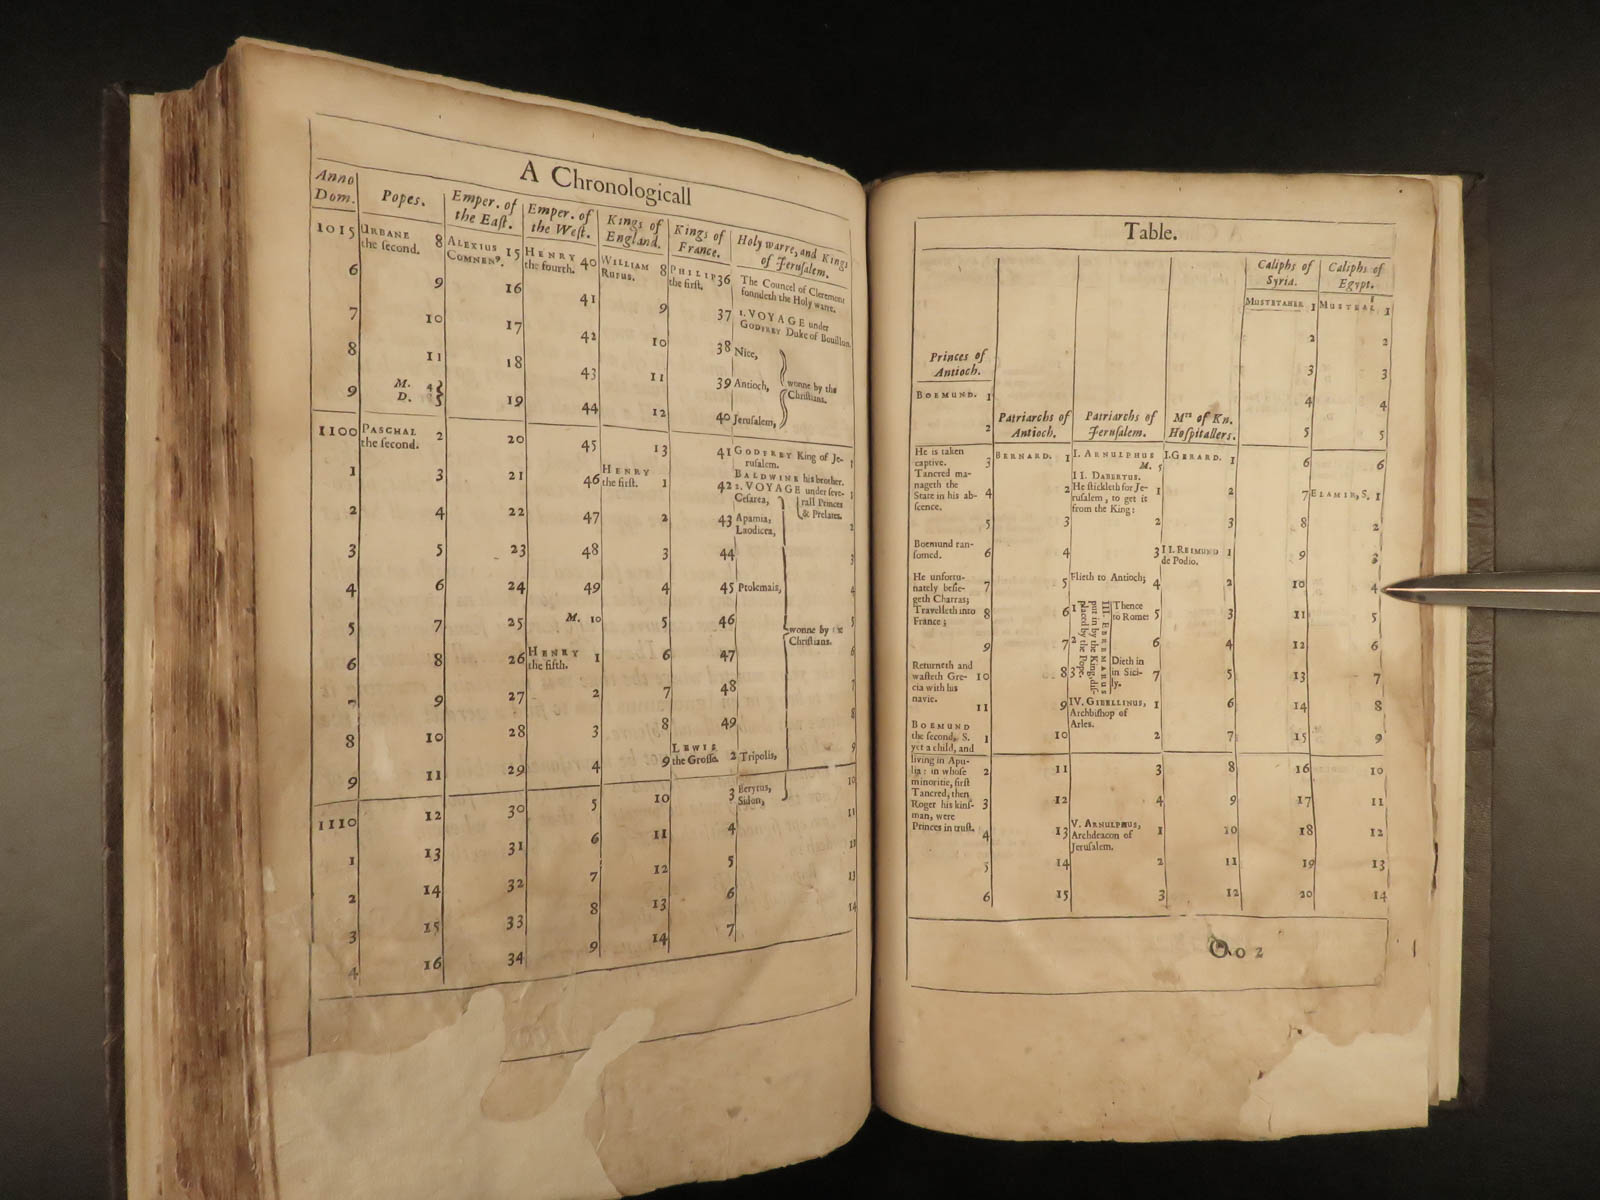 A Chronologicall
Anno Dom. | Popes. | Emper. of the Eaſt. | Emper. of the Weſt. | Kings of England. | Kings of France. | Holy warre, and Kings of Jeruſalem.
1015 | URBANE the ſecond. 8 | ALEXIUS COMNENꝰ. 15 | HENRY the fourth. 40 | WILLIAM Rufus. 8 | PHILIP the firſt. 36 | The Councel of Clermont foundeth the Holy warre.
6 | 9 | 16 | 41 | 9 | 37 | 1. VOYAGE under GODFREY Duke of Bouillon.
7 | 10 | 17 | 42 | 10 | 38 | Nice,
8 | 11 | 18 | 43 | 11 | 39 | Antioch, | wonne by the Chriſtians.
9 | M. 4 D. | 19 | 44 | 12 | 40 | Jeruſalem,
1100 | PASCHAL the ſecond. 2 | 20 | 45 | 13 | 41 | GODFREY King of Jeruſalem. 1
1 | 3 | 21 | 46 | HENRY the firſt. 1 | 42 | BALDWINE his brother. 2. VOYAGE under ſeverall Princes & Prelates. Ceſarea, 1
2 | 4 | 22 | 47 | 2 | 43 | Apamia, Laodicea, 2
3 | 5 | 23 | 48 | 3 | 44 | 3
4 | 6 | 24 | 49 | 4 | 45 | Ptolemais, 4
5 | 7 | 25 | M. 10 | 5 | 46 | wonne by Chriſtians. 5
6 | 8 | 26 | HENRY the fifth. 1 | 6 | 47 | 6
7 | 9 | 27 | 2 | 7 | 48 | 7
8 | 10 | 28 | 3 | 8 | 49 | 8
9 | 11 | 29 | 4 | 9 | LEWIS the Groſſe. 2 | Tripolis, 9
1110 | 12 | 30 | 5 | 10 | 3 | Berytus, Sidon, 10
1 | 13 | 31 | 6 | 11 | 4 | 11
2 | 14 | 32 | 7 | 12 | 5
3 | 15 | 33 | 8 | 13 | 6 | 13
4 | 16 | 34 | 9 | 14 | 7 | 14
Table.
Princes of Antioch.
BOEMUND. 1
2
He is taken captive. 3
Tancred ma-
nageth the
State in his ab- 4
ſcence.
5
Boemund ran-
ſomed. 6
He unfortu-
nately beſie- 7
geth Charras;
Travelleth into 8
France;
9
Returneth and
waſteth Gre- 10
cia with his
navie.
11
BOEMUND
the ſecond, S. 1
yet a child, and
living in Apu-
lia: in whoſe 2
minoritie, firſt
Tancred, then
Roger his kinſ- 3
man, were
Princes in truſt. 4
5
6
Patriarchs of Antioch.
BERNARD. 1
2
3
4
5
6
7
8
9
10
11
12
13
14
15
Patriarchs of Jeruſalem.
I. ARNULPHUS
M. 5
II. DABERTUS.
He ſtickleth for Je- 1
ruſalem, to get it
from the King:
2
3
Flieth to Antioch; 4
1 2 3 III. EBREMARUS put in by the King, diſplaced by the Pope.
Thence to Rome: 5
6
Dieth in in Sici- 7
ly.
IV. GIBELLINUS, 1
Archbiſhop of
Arles.
2
3
4
V. ARNULPHUS,
Archdeacon of 1
Jeruſalem.
2
3
Mʳˢ of Kn. Hoſpitallers.
I. GERARD. 1
2
3
II. REIMUND 1
de Podio.
2
3
4
5
6
7
8
9
10
11
12
Caliphs of Syria.
MUSTETAHER 1
2
3
4
5
6
7
8
9
10
11
12
13
14
15
16
17
18
19
20
Caliphs of Egypt.
MUSTEAL 1
2
3
4
5
6
ELAMIR, S. 1
2
3
4
5
6
7
8
9
10
11
12
13
14
Oo 2